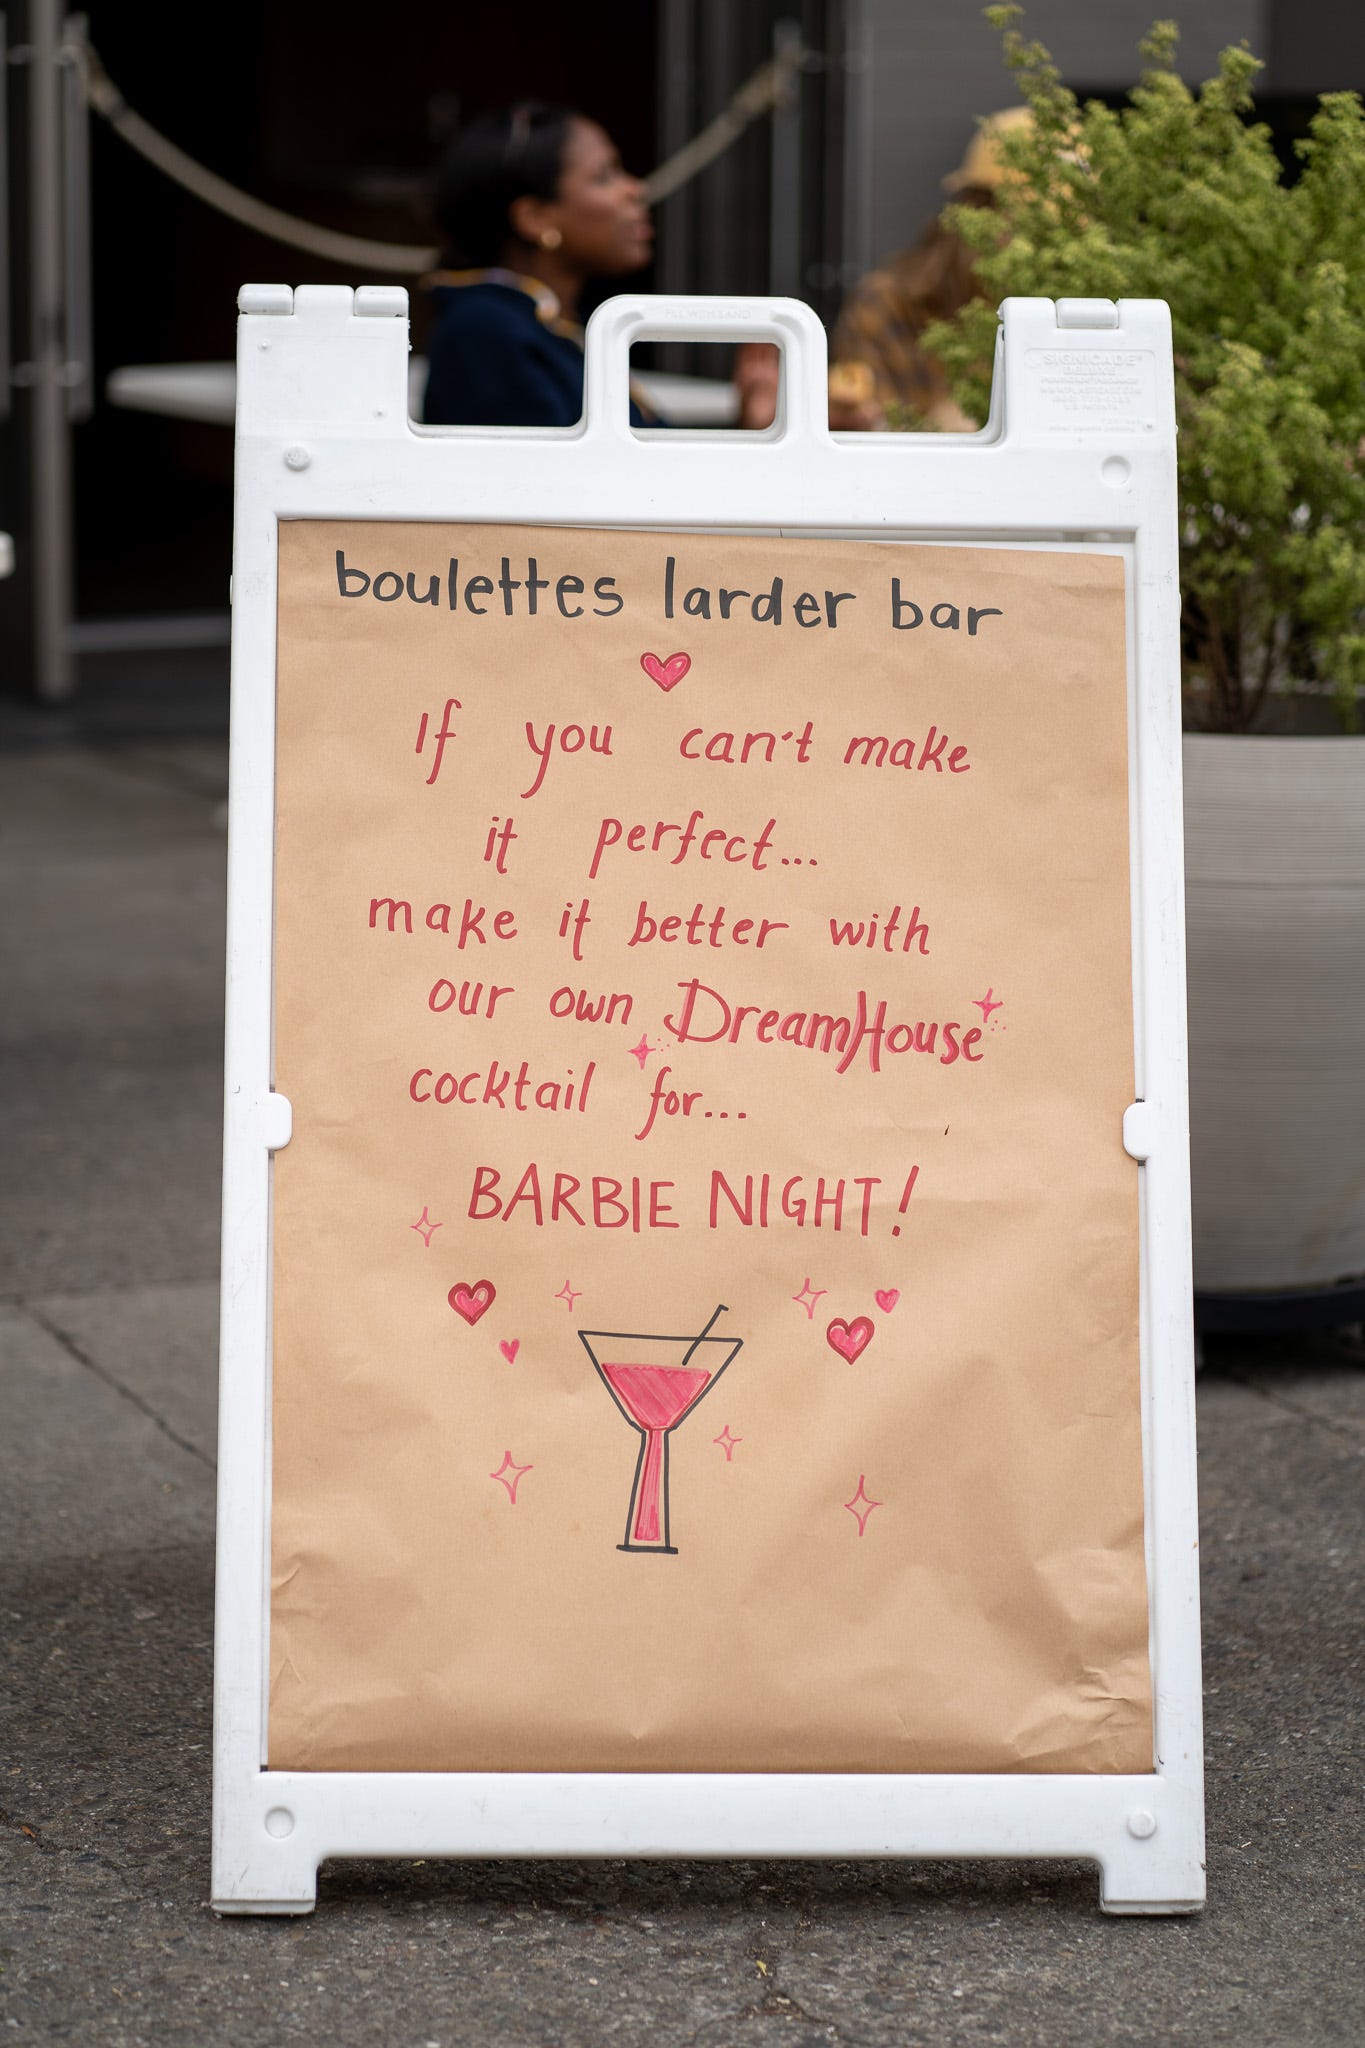 FILL WITH SAND
SIGNICADE®
DELUXE
boulettes larder bar
If you can't make
it perfect...
make it better with
our own DreamHouse
cocktail for...
BARBIE NIGHT!